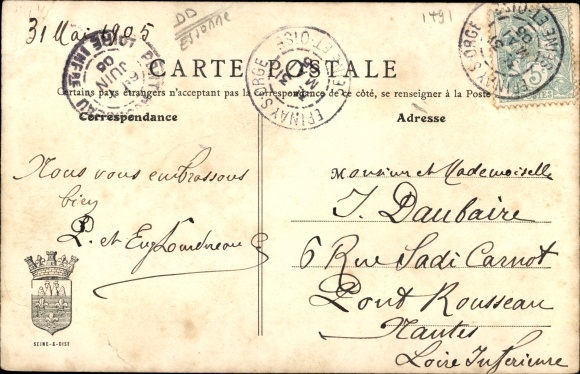 31 Mai 1905
DD
Essonne
1491
EPINAY S. ORGE SEINE-ET-OISE
PONT-ROUSSEAU LOIRE INFRE
JUIN
CARTE POSTALE
Certains pays étrangers n'acceptant pas la Correspondance de ce côté, se renseigner à la Poste
Correspondance
Adresse
Nous vous embrassons
bien
P. et Eug
Monsieur et Mademoiselle
J. Daubaire
6 Rue Sadi Carnot
Pont Rousseau
Nantes
Loire Inférieure
SEINE-&-OISE